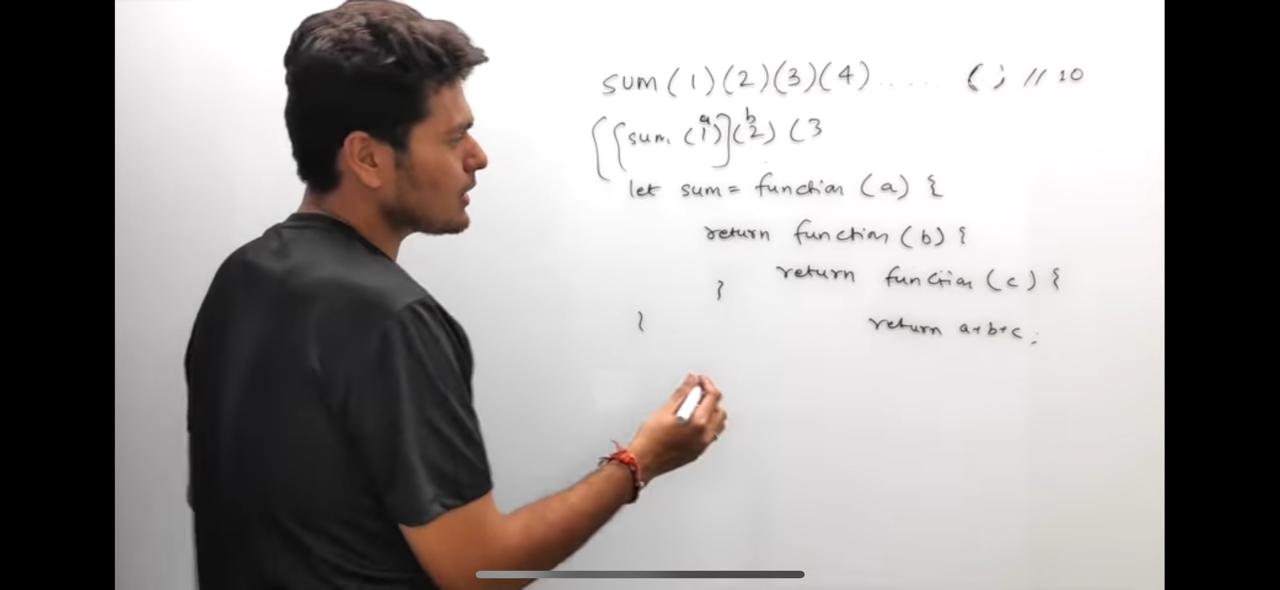 sum(1)(2)(3)(4)..... (; // 10
[[sum (1)](2) (3
a b
let sum = function (a) {
return function (b) {
return function (c) {
}
return a+b+c;
}